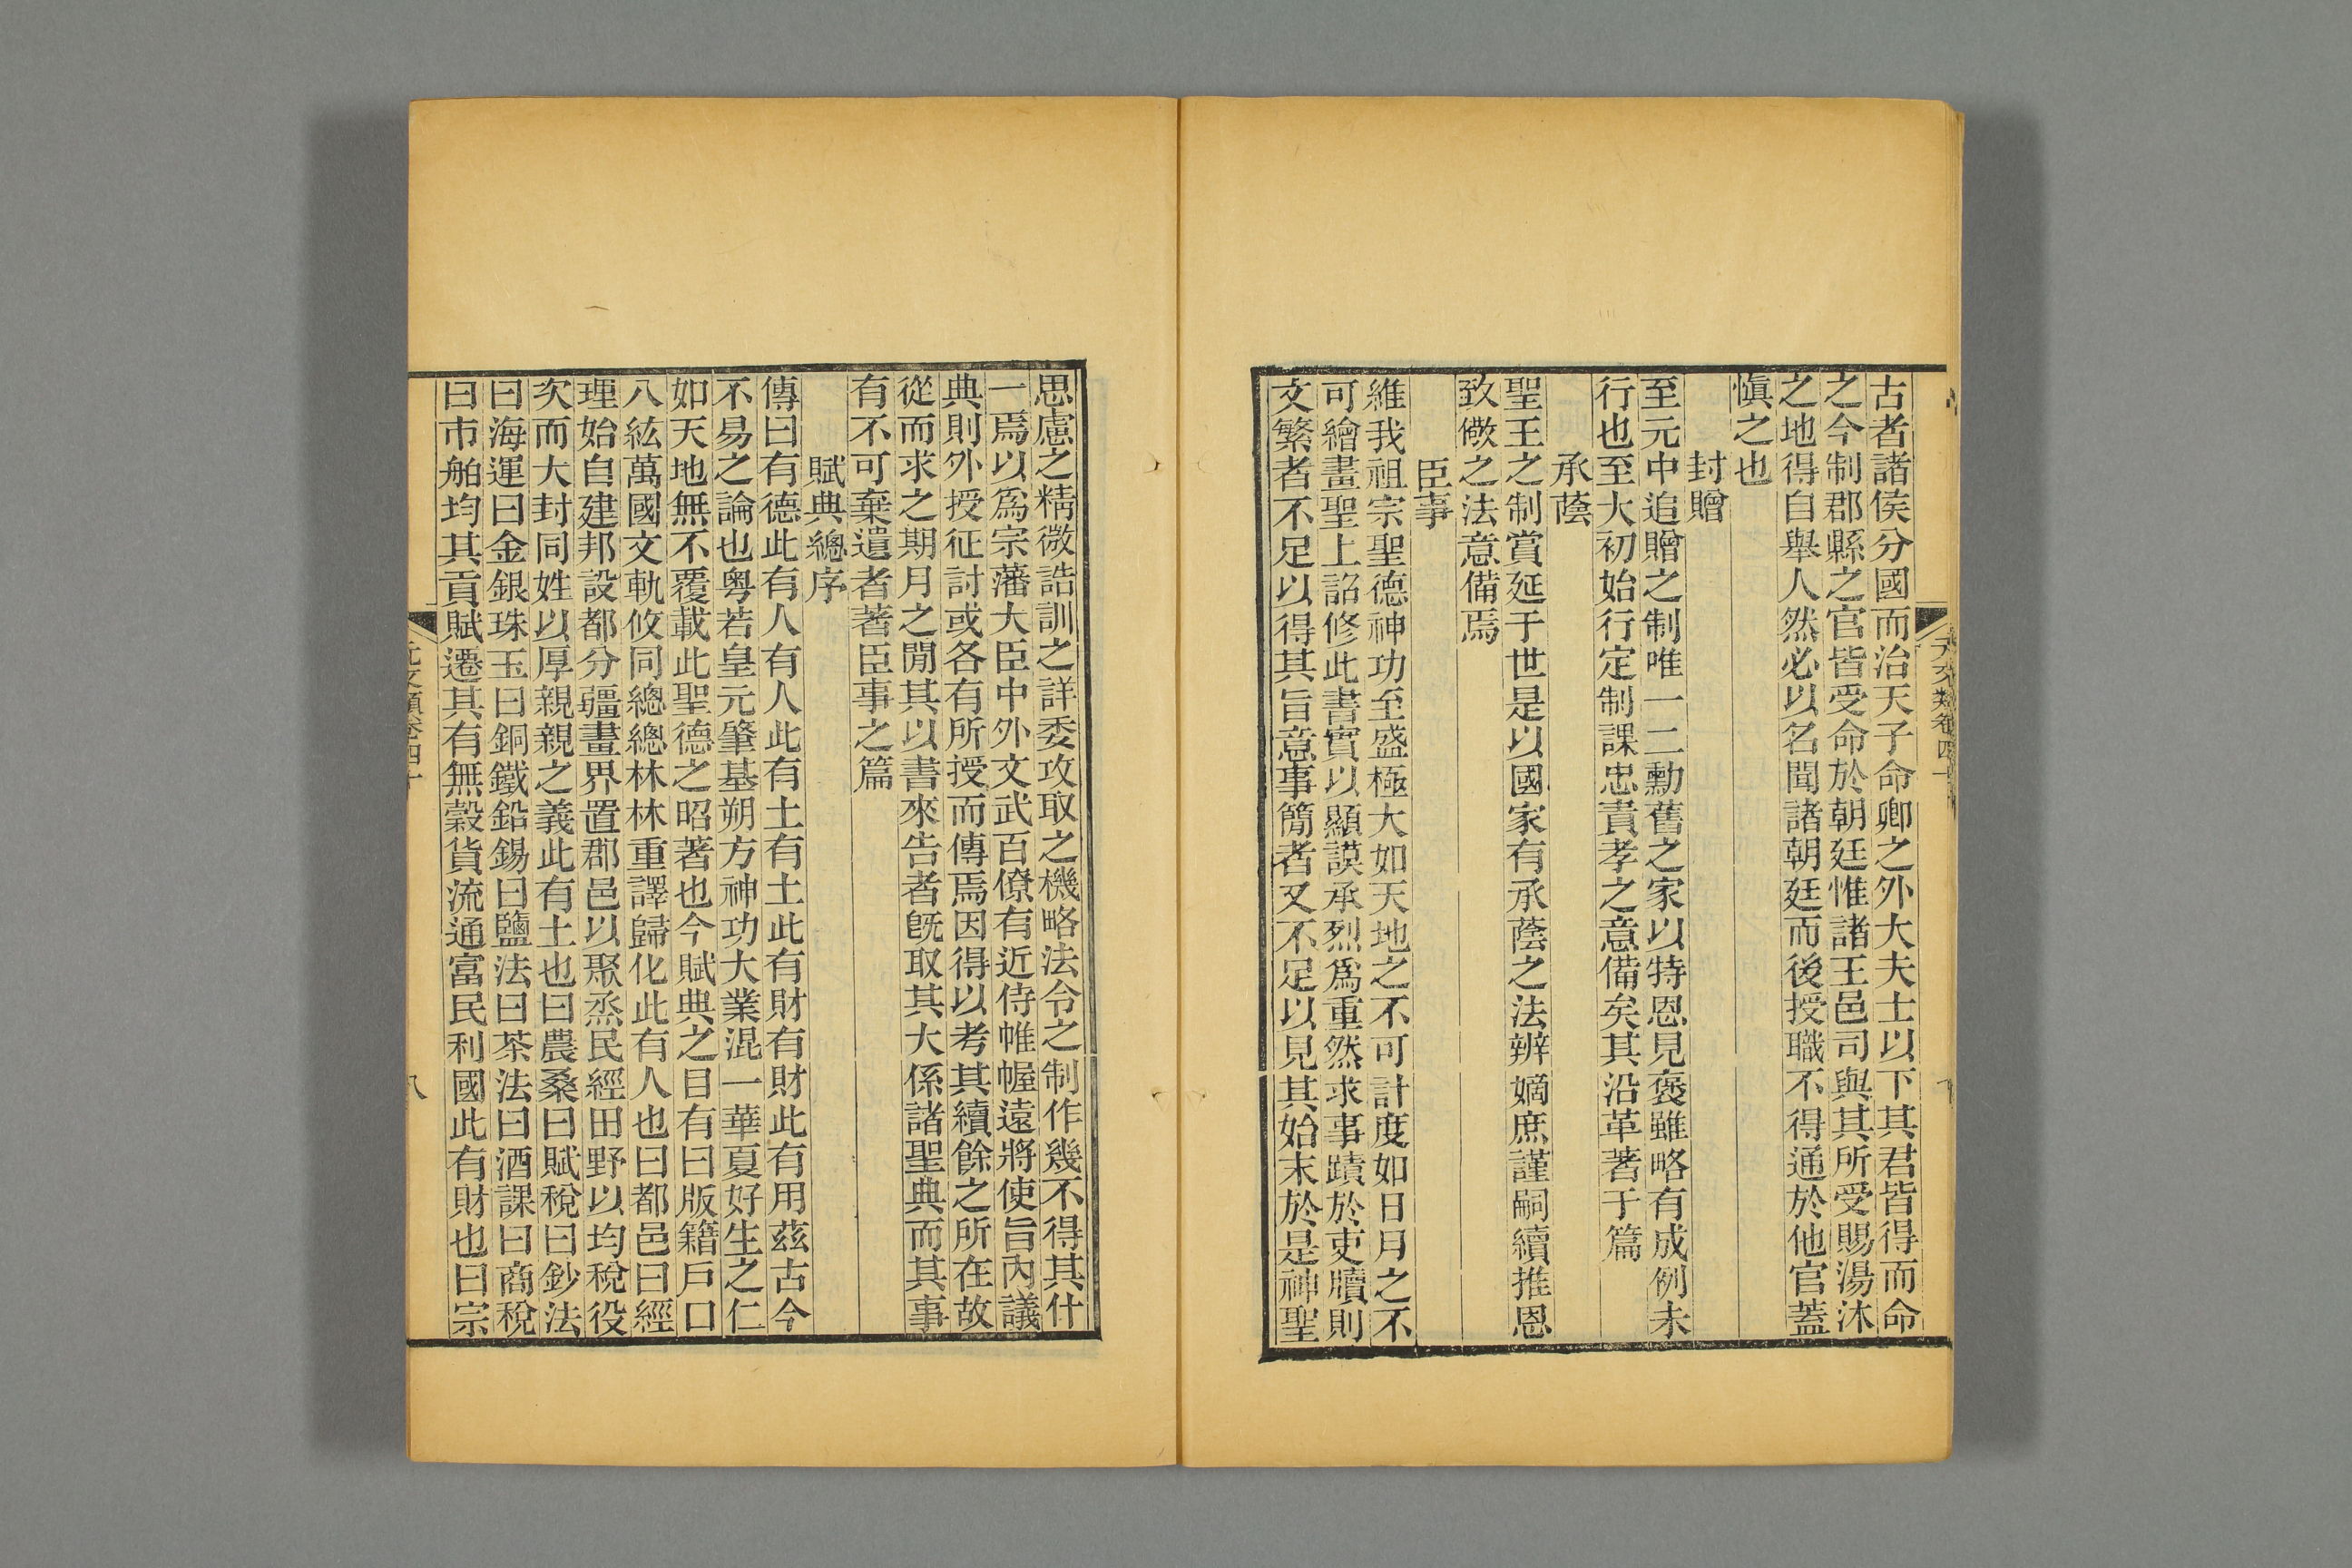 古者諸侯分國而治天子命卿之外大夫士以下其君皆得而命
之今制郡縣之官皆受命於朝廷惟諸王邑司與其所受賜湯沐
之地得自舉人然必以名聞諸朝廷而後授職不得通於他官蓋
愼之也
封贈
至元中追贈之制唯一二勳舊之家以特恩見褒雖略有成例未
行也至大初始行定制課忠責孝之意備矣其沿革著于篇
承蔭
聖王之制賞延于世是以國家有承蔭之法辨嫡庶謹嗣續推恩
致儆之法意備焉
臣事
維我祖宗聖德神功至盛極大如天地之不可計度如日月之不
可繪畫聖上詔修此書實以顯謨承烈爲重然求事蹟於吏牘則
文繁者不足以得其旨意事簡者又不足以見其始末於是神聖
思慮之精微誥訓之詳委攻取之機略法令之制作幾不得其什
一焉以爲宗藩大臣中外文武百僚有近侍帷幄遠將使旨內議
典則外授征討或各有所授而傳焉因得以考其續餘之所在故
從而求之期月之閒其以書來告者旣取其大係諸聖典而其事
有不可棄遺者著臣事之篇
賦典總序
傳曰有德此有人有人此有土有土此有財有財此有用茲古今
不易之論也粤若皇元肇基朔方神功大業混一華夏好生之仁
如天地無不覆載此聖德之昭著也今賦典之目有曰版籍戶口
八紘萬國文軌攸同總總林林重譯歸化此有人也曰都邑曰經
理始自建邦設都分疆畫界置郡邑以聚烝民經田野以均稅役
次而大封同姓以厚親親之義此有土也曰農桑曰賦稅曰鈔法
曰海運曰金銀珠玉曰銅鐵鉛錫曰鹽法曰茶法曰酒課曰商稅
曰市舶均其貢賦遷其有無穀貨流通富民利國此有財也曰宗
元文類卷四十
八